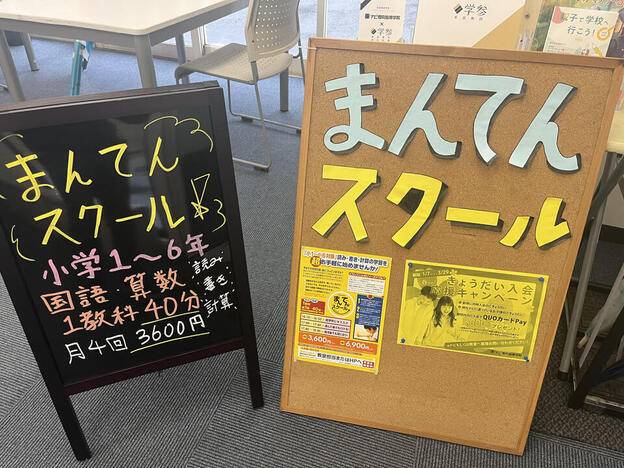 まんてん
スクール!
小学1〜6年
国語・算数
1教科40分
読み
書き
計算
月4回 3600円
まんてん
スクール
ナビ個別指導学院
×
学参
学参
親子で学校へ
行こう!
読み・書き・計算の学習を
お手軽に始めませんか!
まんてん
スクール
3,600円
6,900円
教室担当またはHPへ
きょうだい入会
キャンペーン
QUOカードPay
プレゼント